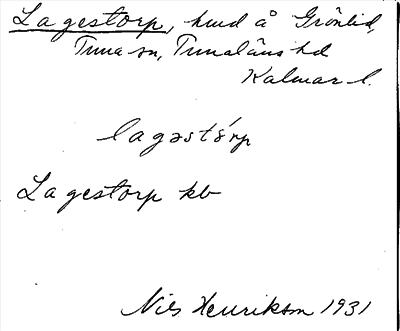 Lagestorp, hmd å Grönlid,
Tuna sn, Tunaläns hd
Kalmar l.
lagəstórp
Lagestorp kb
Nils Henrikson 1931